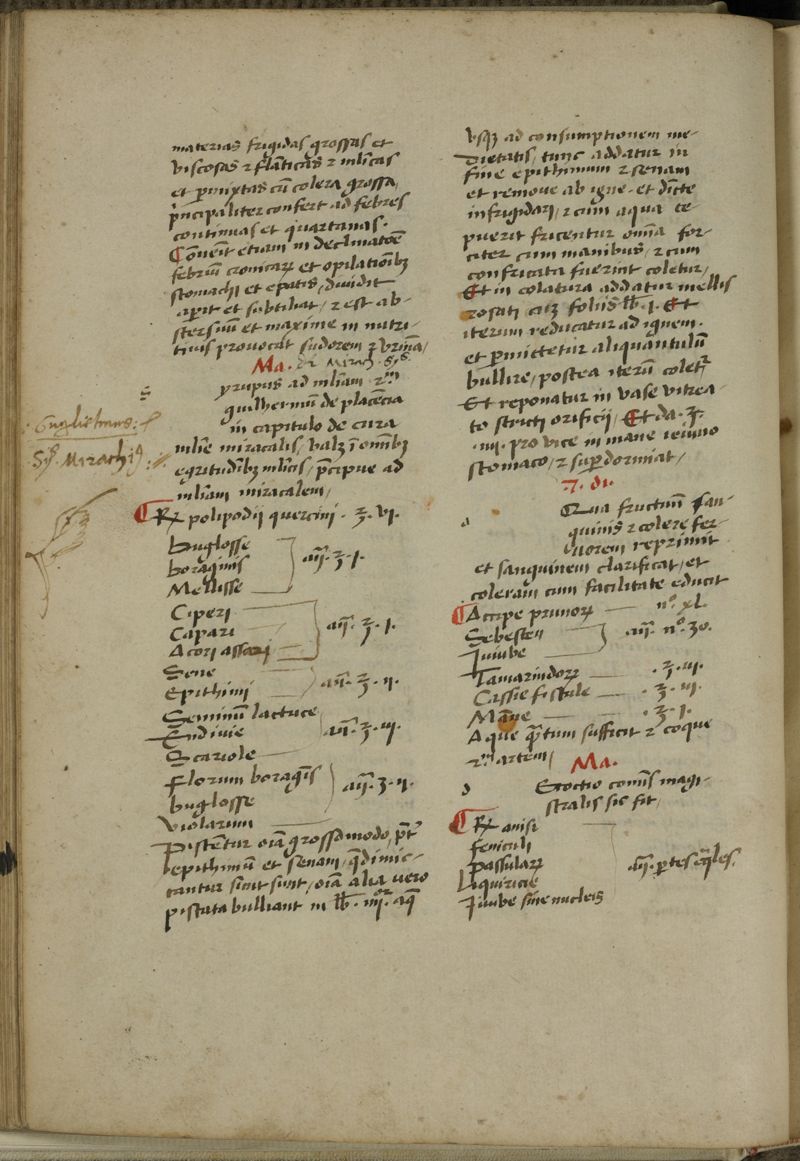 materias frigidas grossas et
viscosas ⁊ flāticas ⁊ mlīcas
et pmixtas cū colera grossa,
pncipaliter confert ad febres
continuas et quartanas.
Cōueīt etiam in declinatōe
febriū cronicaꝝ et opilatiōibꝫ
stomachi et epatis, diuidit
aperit et subtiliat, ⁊ est ab-
stersiuū et maxime in nutri-
tiuis prouocat sudorem ⁊ vrinā,
Ma.
yrupus ad mlīam
guilhermū de placēcia
in capitulo de cura
mlīe miracalis, valꝫ ī omībꝫ
egritudībꝫ mlīcis, pcipue ad
mlīam miracalem,
Guglielmus:
Sy. Mirachi
R͞x polipodii quercini. ʒ. vi.
buglosse
boraginis
Mellisse
āa. ʒ. i.
Ciperi
Capari
Acori
āa. ʒ. i.
Sene
Epithimi
āa. ʒ. ii.
Seminū lactuce
Endiuie
Scariole
āa. ʒ. iii.
florum boragīs
buglosse
violarum
āa. ʒ. ii.
Pistentur oīa grosso modo, pt
epithimū et senam, q dimic-
tantur sicut sunt, oīa alia vero
pistata bulliant in lb. iiii. aq
vsqꝫ ad consumptionem me-
dietatis, tunc addatur in
fine epithimum ⁊ senam
et remoue ab igne. et dīcte
infrigidari, ⁊ cum aqua te-
puerit fricentur omīa for-
titer cum manibus, ⁊ cum
confricata fuerint coletur,
Et in colatura addatur mellis
rosati cuꝫ foliis lb. i. Et
iterum reducatur ad ignem.
et pmictetur aliquantulū
bullire, postea iterū coletr
Et reponatur in vase vitrea-
to stricti orificii, Et da. ʒ.
.iiii. pro vice in mane ieiuno
stomaco, ⁊ supdormiat,
Qua fructuū san-
guinis ⁊ colere fer-
uorem reprimit
et sanguinem clarificat, et
coleram cum facilitate educit
Accipe prunoꝝ n°. xl.
Sebesten
Iuiube
āa. n°. 30.
Tamarindoꝝ . ʒ. iii.
Cassie fistule . ʒ. iii.
Māne . ʒ. i.
Aque qtum sufficit ⁊ coque
artem, Ma.
coctio comīs magi-
stralis sic fit,
R͞x anisi
feniculi
passulaꝝ
Liquiricie
Iuiube sine nucleis
āa. ptes eqles.